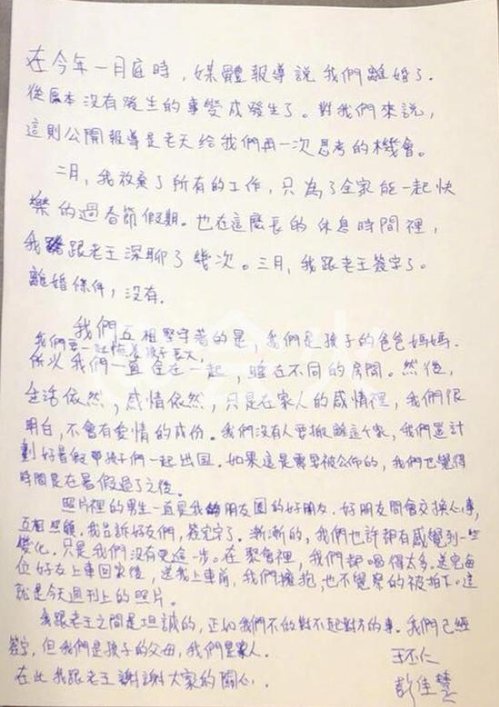 在今年一月底時，媒體報導說我們離婚了.
從原本沒有發生的事變成發生了。對我們來說，
這則公開報導是老天給我們再一次思考的機會。
二月，我放棄了所有的工作，只為了全家能一起快
樂的過春節假期。也在這麼長的休息時間裡，
我跟老王深聊了幾次。三月，我跟老王簽字了。
離婚條件，沒有.
我們互相堅守著的是，我們是孩子的爸爸媽媽.
我們要一起陪著孩子長大,
所以我們一直住在一起，睡在不同的房間。然後，
生活依然，感情依然，只是在家人的感情裡，我們很
明白，不會有愛情的成份。我們沒有人要搬離這個家，我們還計
劃好暑假帶孩子們一起出國。如果這是需要被公佈的，我們也覺得
時間是在暑假過了之後。
照片裡的男生一直是我朋友圈的好朋友. 好朋友間會交換心事，
互相照顧. 我告訴好友們，簽完字了. 漸漸的，我們也許都有感覺到一些
變化. 只是我們沒有更進一步。在聚會裡，我們都喝得太多。送完每
位好友上車回家後，送我上車前，我們擁抱，也不覺察的被拍下。這
就是今天週刊上的照片。
我跟老王之間是坦誠的，正如我們不做對不起對方的事。我們已經
簽字，但我們是孩子的父母，我們是家人.
在此我跟老王謝謝大家的關心。
王丕仁
彭佳慧